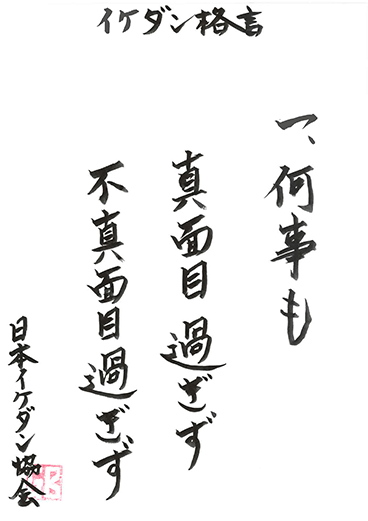 イケダン格言
一、何事も
真面目過ぎず
不真面目過ぎず
日本イケダン協会